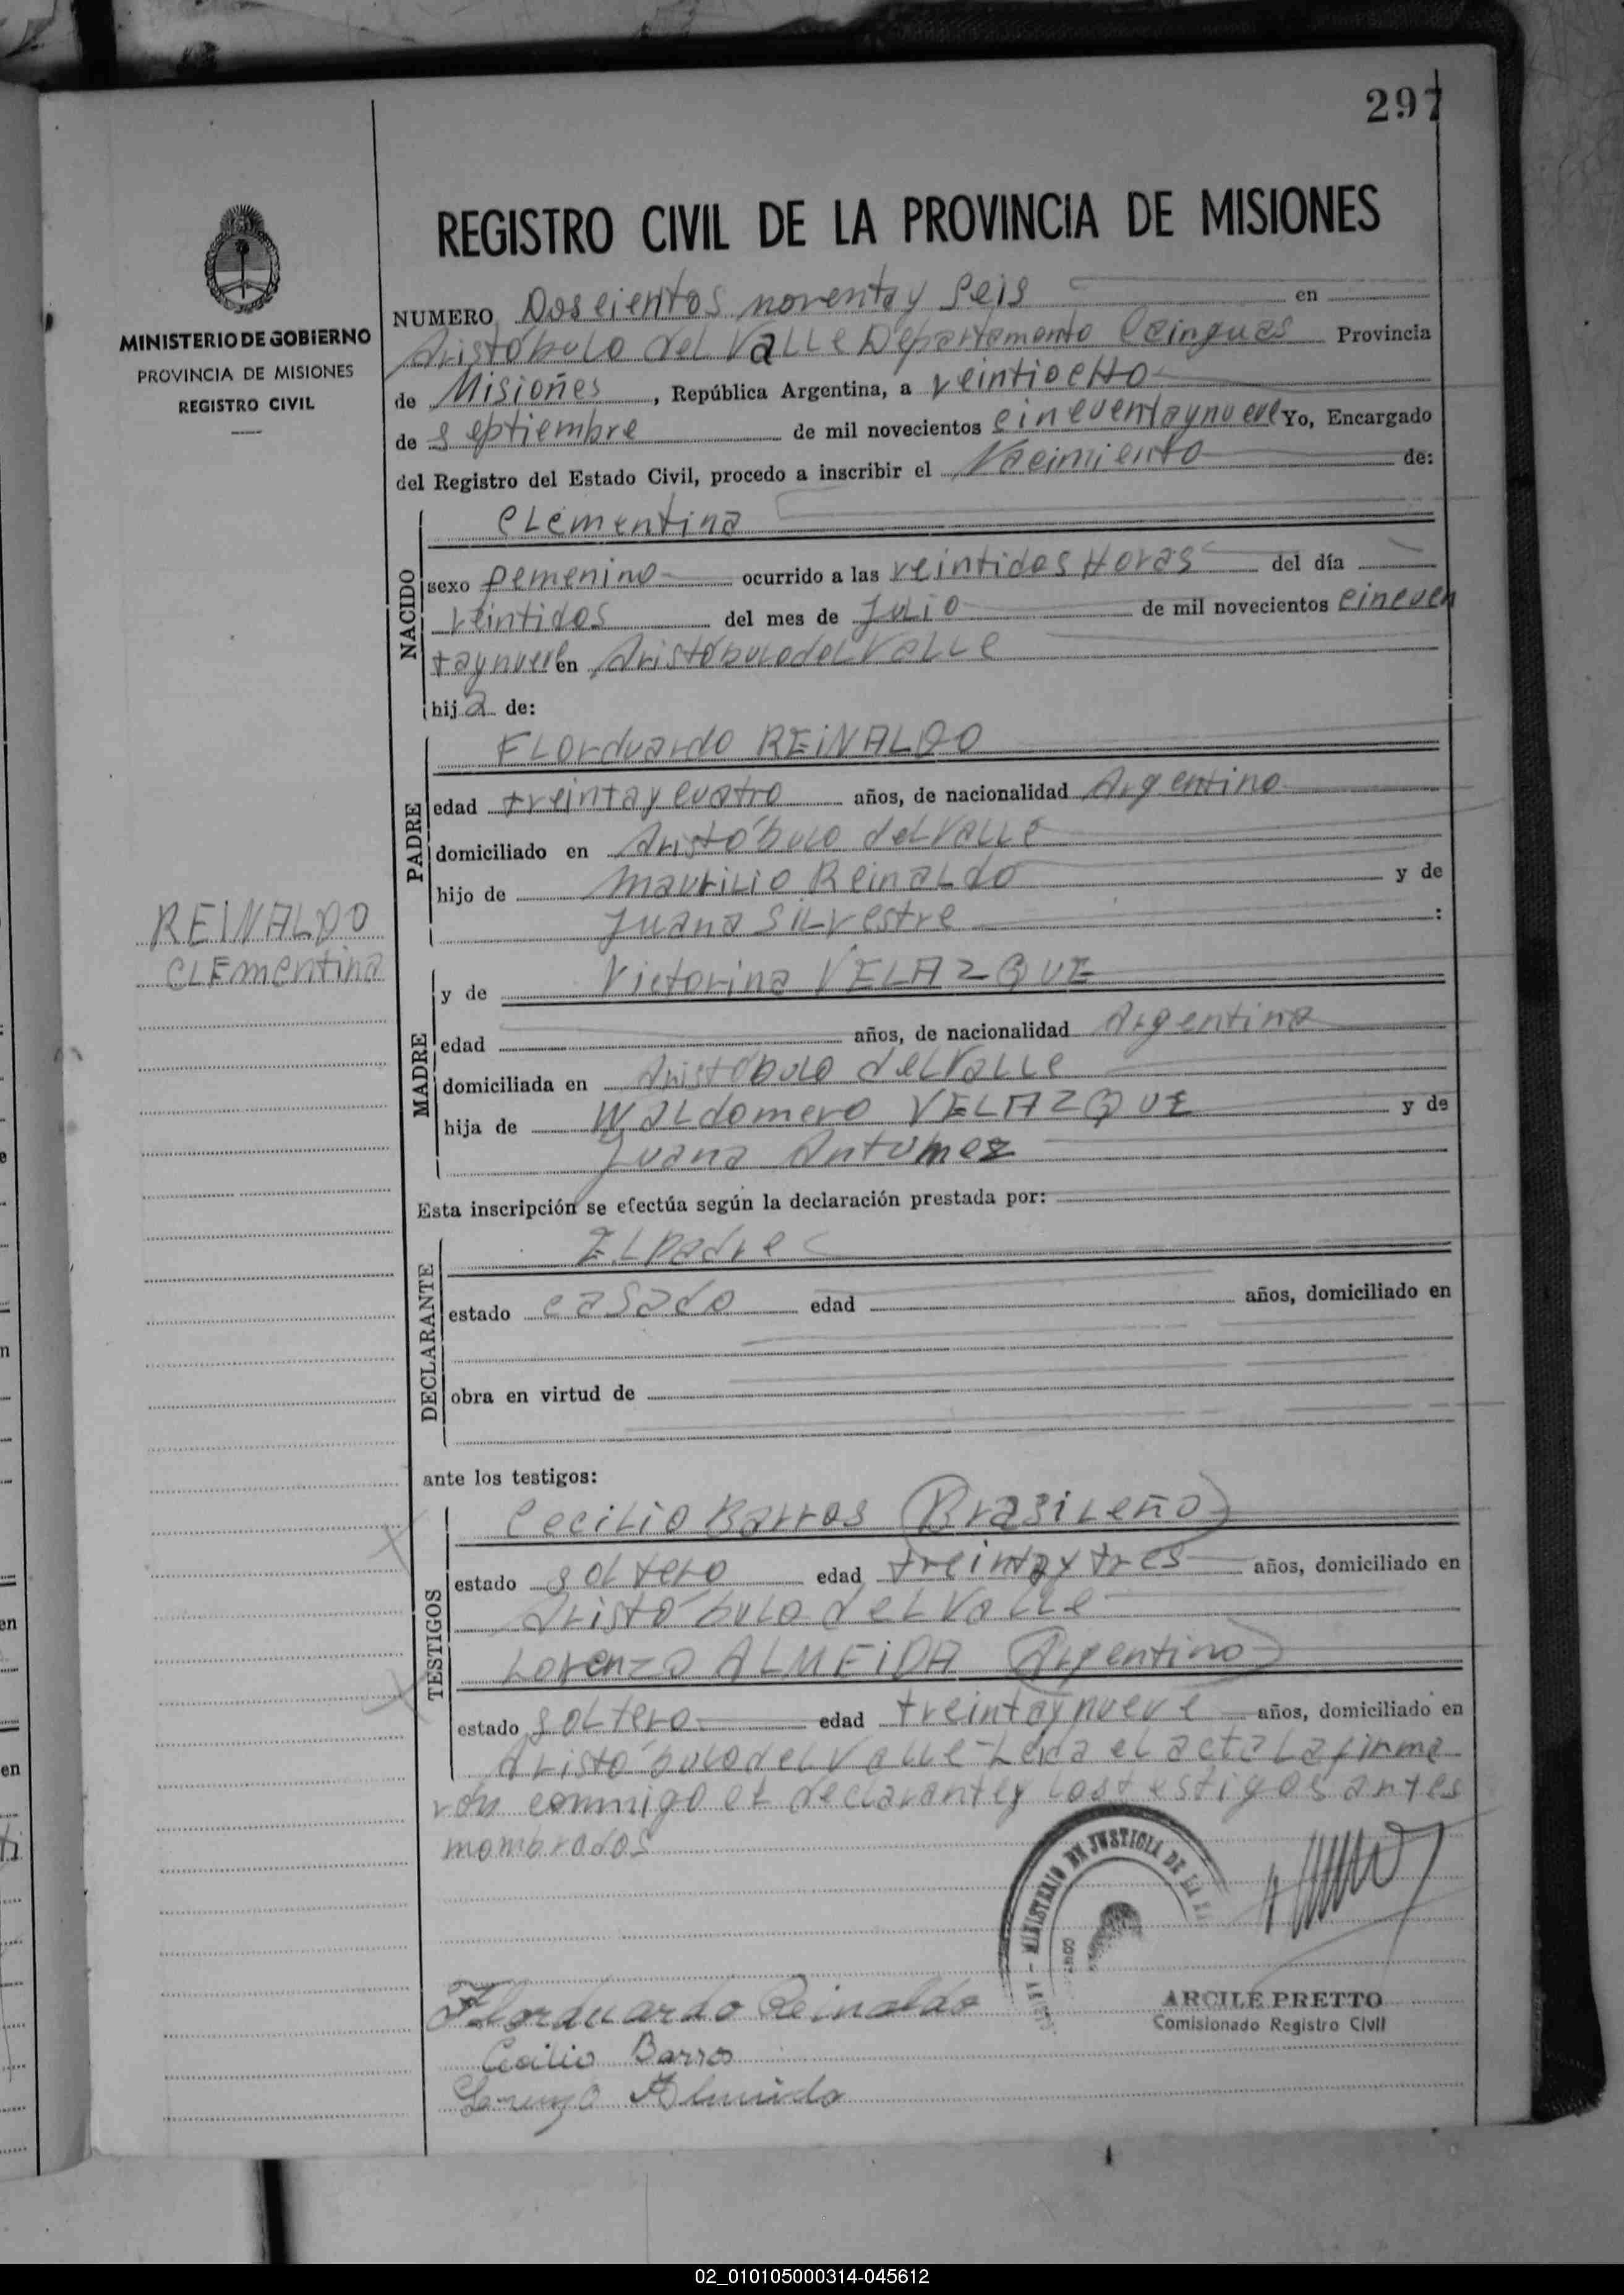 297
REGISTRO CIVIL DE LA PROVINCIA DE MISIONES
MINISTERIO DE GOBIERNO
PROVINCIA DE MISIONES
REGISTRO CIVIL
NUMERO Doscientos noventa y Seis en
Aristóbulo del Valle Departamento Cainguas Provincia
de Misiones, República Argentina, a veintiocho
de septiembre de mil novecientos cincuentaynueve Yo, Encargado
del Registro del Estado Civil, procedo a inscribir el Nacimiento de:
NACIDO
CLementina
sexo femenino ocurrido a las veintidos Horas del día
veintidos del mes de Julio de mil novecientos cincuen
taynueve en Aristóbulo del Valle
hija de:
PADRE
FLorduardo REiNALDO
edad treinta y cuatro años, de nacionalidad Argentino
domiciliado en Aristóbulo del Valle
hijo de Maurilio Reinaldo y de
Juana Silvestre :
REINALDO
CLEmentina
MADRE
y de Victorina VELAZQUE
edad años, de nacionalidad Argentina
domiciliada en Aristobulo del Valle
hija de Waldomero VELAZQUE y de
Juana
Esta inscripción se efectúa según la declaración prestada por:
DECLARANTE
El padre
estado casado edad años, domiciliado en
obra en virtud de
ante los testigos:
TESTIGOS
Cecilio Barros (Brasileño)
estado soltero edad treintay tres años, domiciliado en
Aristóbulo del Valle
Lorenzo ALMEiDA (Argentino)
estado soltero edad treintaynueve años, domiciliado en
Aristóbulo del Valle- Leida el acta La firma
ron conmigo el declarante y los testigos antes
mombrados
MINISTERIO DE JUSTICIA DE LA
Florduardo Reinaldo
ARCILE PRETTO
Comisionado Registro Civil
Cecilio Barros
Lorenzo Almeida
02_010105000314-045612